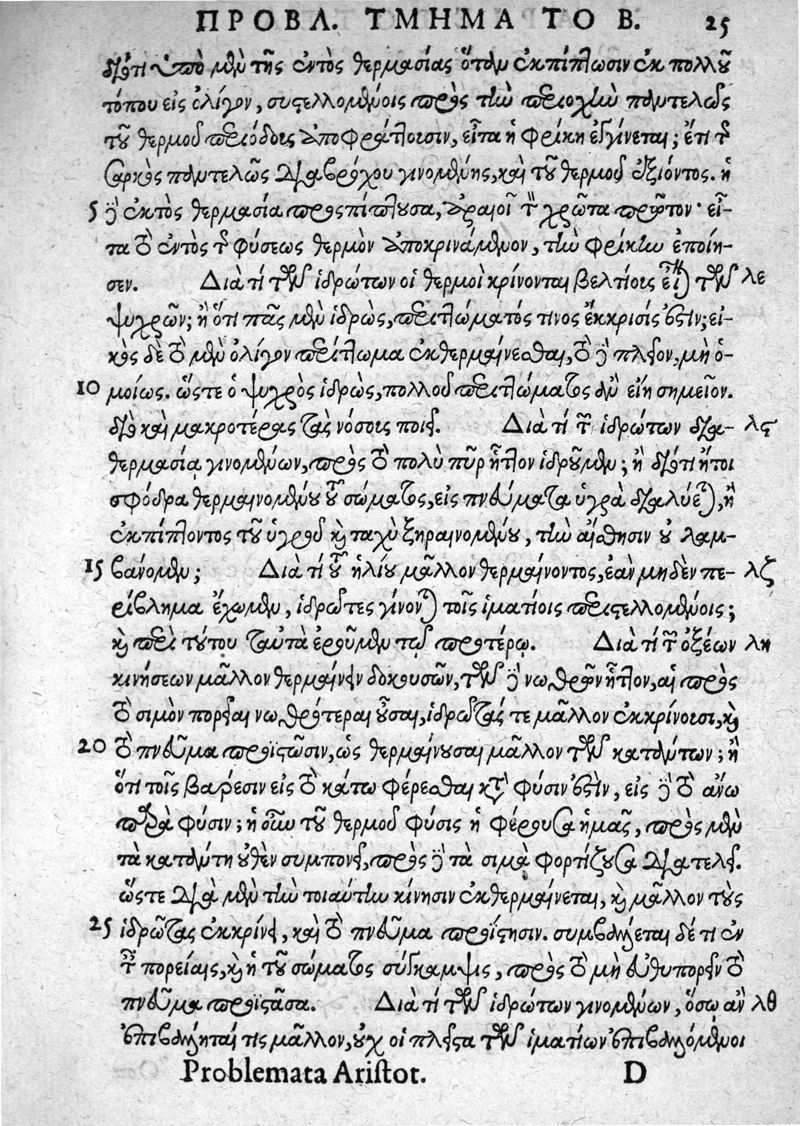 ΠΡΟΒΛ. ΤΜΗΜΑ ΤΟ Β. 25
διότι ὑπὸ μὲν τῆς ἐντὸς θερμασίας ὅταν ἐκπίπτωσιν ἐκ πολλοῦ
τόπου εἰς ὀλίγον, συστελλομένοις πρὸς τὴν περιοχὴν παντελῶς
τοῦ θερμοῦ περιόδους ἀποφράττουσιν, εἶτα ἡ φρίκη ἐγγίνεται; ἔτι τῆς
σαρκὸς παντελῶς διαβρόχου γινομένης, καὶ τοῦ θερμοῦ ἐξιόντος. ἡ
5 δὲ ἐκτὸς θερμασία προσπίπτουσα, ἀραιοῖ τὸν χρῶτα πρῶτον· εἶ-
τα τὸ ἐντὸς τῆς φύσεως θερμὸν ἀποκρινάμενον, τὴν φρίκην ἐποίη-
σεν. Διὰ τί τῶν ἱδρώτων οἱ θερμοὶ κρίνονται βελτίους εἶναι τῶν λε
ψυχρῶν; ἢ ὅτι πᾶς μὲν ἱδρὼς, περιττώματός τινος ἔκκρισίς ἐστιν; εἰ-
κὸς δὲ τὸ μὲν ὀλίγον περίττωμα ἐκθερμαίνεσθαι, τὸ δὲ πλεῖον, μὴ ὁ-
10 μοίως. ὥστε ὁ ψυχρὸς ἱδρὼς, πολλοῦ περιττώματος ἂν εἴη σημεῖον.
διὸ καὶ μακροτέρας τὰς νόσους ποιεῖ. Διὰ τί τῶν ἱδρώτων δια- λϛ
θερμασίᾳ γινομένων, πρὸς τὸ πολὺ πῦρ ἧττον ἱδροῦμεν; ἢ διότι ἤτοι
σφόδρα θερμαινομένου τοῦ σώματος, εἰς πνεύματα ὑγρὰ διαλύεται, ἢ
ἐκπίπτοντος τοῦ ὑγροῦ καὶ ταχὺ ξηραινομένου, τὴν αἴσθησιν οὐ λαμ-
15 βάνομεν; Διὰ τί τοῦ ἡλίου μᾶλλον θερμαίνοντος, ἐὰν μηδὲν πε- λζ
ρίβλημα ἔχωμεν, ἱδρῶτες γίνονται τοῖς ἱματίοις περιστελλομένοις;
καὶ περὶ τούτου ταὐτὰ ἐροῦμεν τῷ προτέρῳ. Διὰ τί τῶν ὀξέων λη
κινήσεων μᾶλλον θερμαίνειν δοκουσῶν, τῶν δὲ νωθρῶν ἧττον, αἱ πρὸς
τὸ σιμὸν πορεῖαι νωθρότεραι οὖσαι, ἱδρῶτάς τε μᾶλλον ἐκκρίνουσι, καὶ
20 τὸ πνεῦμα προϊστῶσιν, ὡς θερμαίνουσαι μᾶλλον τῶν κατάντων; ἢ
ὅτι τοῖς βαρέσιν εἰς τὸ κάτω φέρεσθαι κατὰ φύσιν ἐστὶν, εἰς δὲ τὸ ἄνω
παρὰ φύσιν; ἡ οὖν τοῦ θερμοῦ φύσις ἡ φέρουσα ἡμᾶς, πρὸς μὲν
τὰ κατάντη οὐθὲν συμπονεῖ, πρὸς δὲ τὰ σιμὰ φορτίζουσα διατελεῖ.
ὥστε διὰ μὲν τὴν τοιαύτην κίνησιν ἐκθερμαίνεται, καὶ μᾶλλον τοὺς
25 ἱδρῶτας ἐκκρίνει, καὶ τὸ πνεῦμα προΐστησιν. συμβάλλεται δέ τι ἐν
ταῖς πορείαις, καὶ ἡ τοῦ σώματος σύγκαμψις, πρὸς τὸ μὴ εὐθυπορεῖν τὸ
πνεῦμα προϊστᾶσα. Διὰ τί τῶν ἱδρώτων γινομένων, ὅσῳ ἂν λθ
ἐπιβάλληταί τις μᾶλλον, οὐχ οἱ πλεῖστα τῶν ἱματίων ἐπιβαλλόμενοι
Problemata Aristot. D